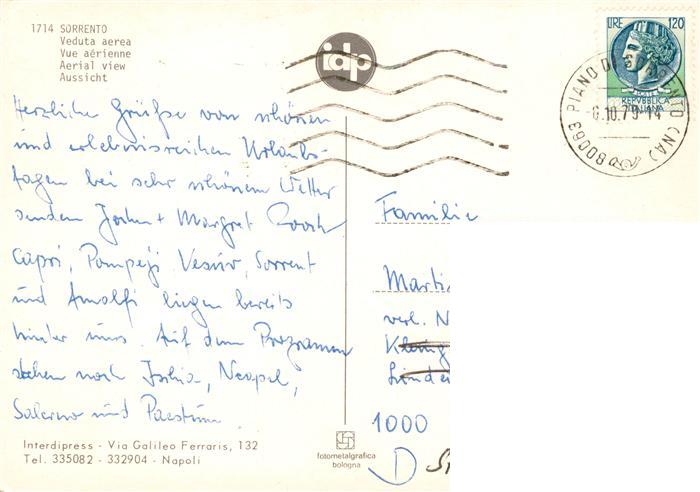 1714 SORRENTO
Veduta aerea
Vue aérienne
Aerial view
Aussicht
idp
LIRE 120
REPVBBLICA
ITALIANA
80063 PIANO DI SORRENTO (NA)
6.10.79-14
Herzliche Grüße von schönen
und erlebnisreichen Urlaubs-
tagen bei sehr schönem Wetter
senden Jochen + Margret
Capri, Pompeji, Vesuv, Sorrent
und Amalfi liegen bereits
hinter uns. Auf dem Programm
stehen noch Ischia, Neapel,
Salerno und Paestum.
Familie
Marti
verl. N
Kleing
Linde
1000
D
Interdipress - Via Galileo Ferraris, 132
Tel. 335082 - 332904 - Napoli
fotometalgrafica
bologna